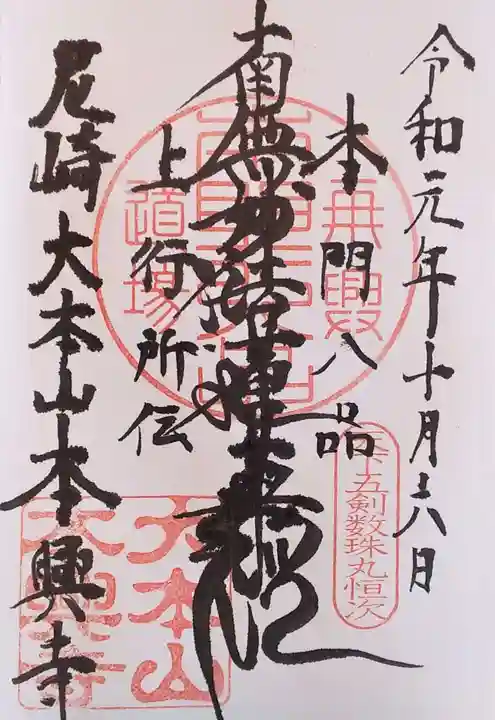 令和元年十月十六日
本門八品
南無妙法蓮華経
上行所伝
尼崎大本山本興寺
天下五剣数珠丸恒次
道場
大本山
本興寺